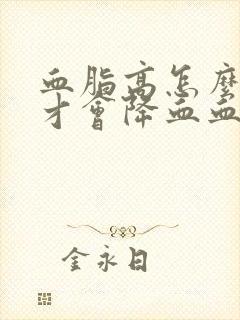 血脂高怎麼
才會降血血
金永日